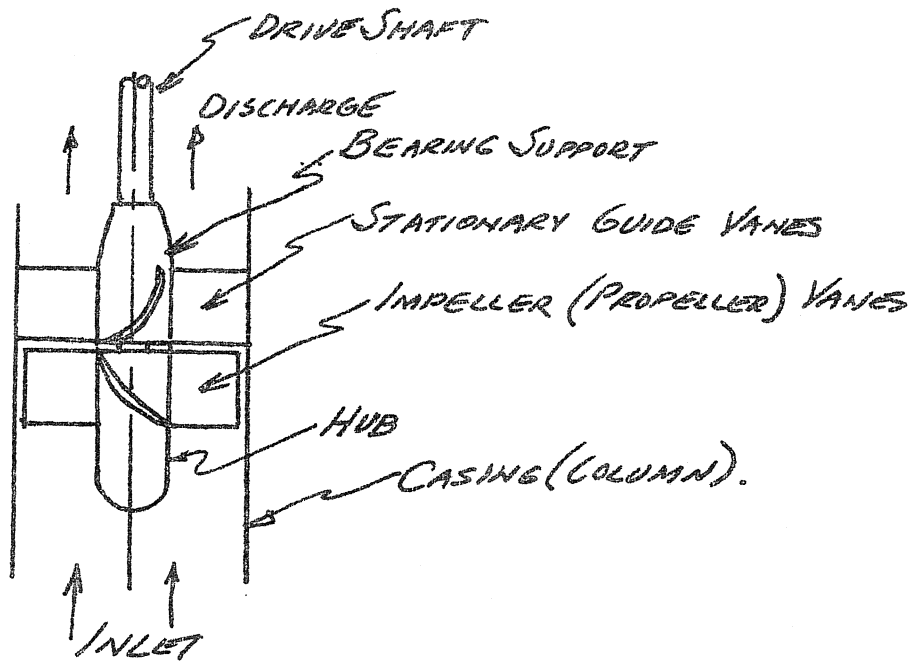 DRIVE SHAFT
DISCHARGE
BEARING SUPPORT
STATIONARY GUIDE VANES
IMPELLER (PROPELLER) VANES
HUB
CASING (COLUMN).
INLET